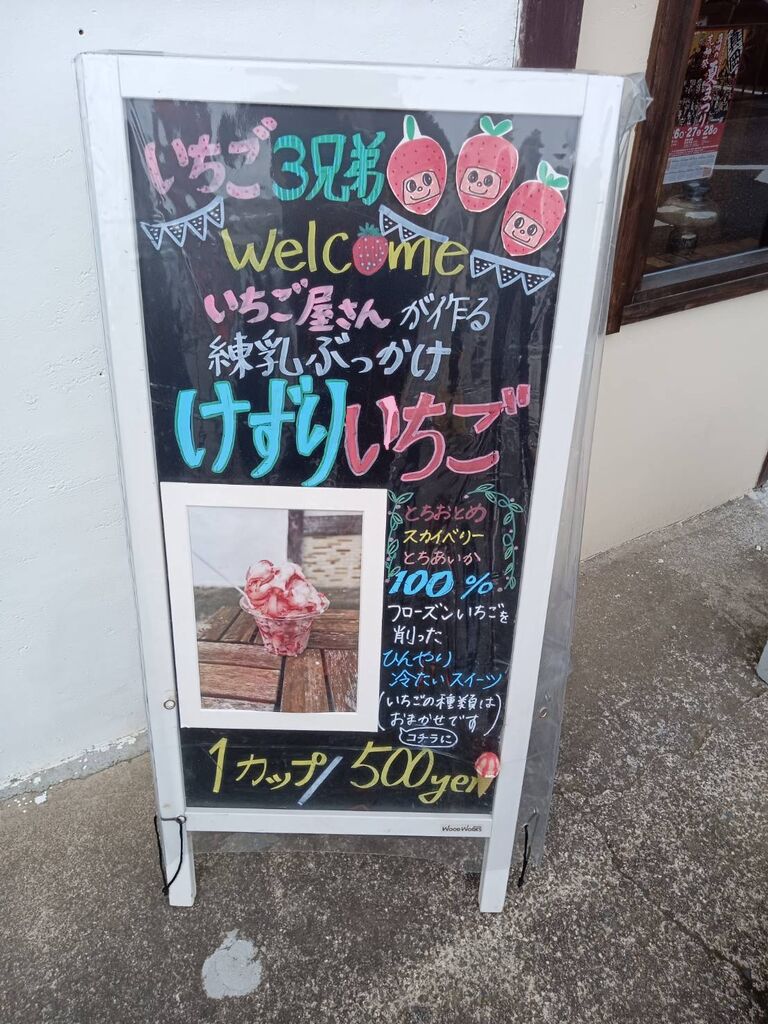 いちご3兄弟
Welcome
いちご屋さんが作る
練乳ぶっかけ
けずりいちご
とちおとめ
スカイベリー
とちあいか
100%
フローズンいちごを
削った
ひんやり
冷たいスイーツ
(いちごの種類は
おまかせです)
コチラに
1カップ/500yen
Wood Works
夏まつり
26日・27日・28日